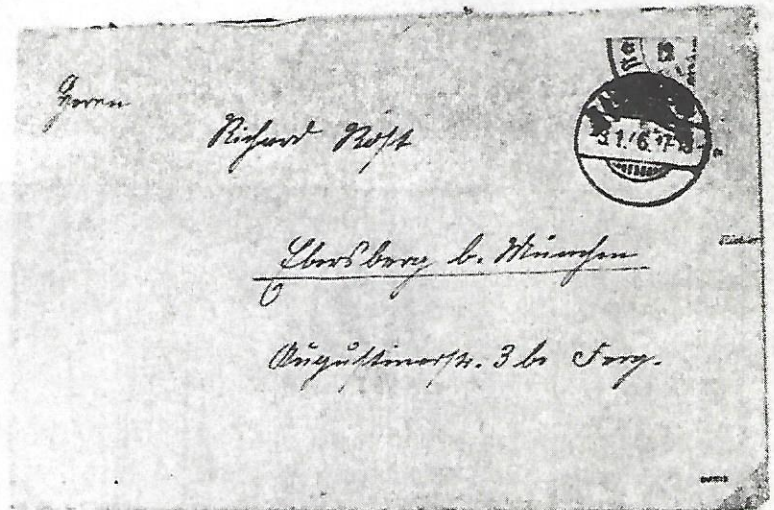 Herrn
Richard Rost
Ebersberg b. München
Augustinerstr. 3 b.